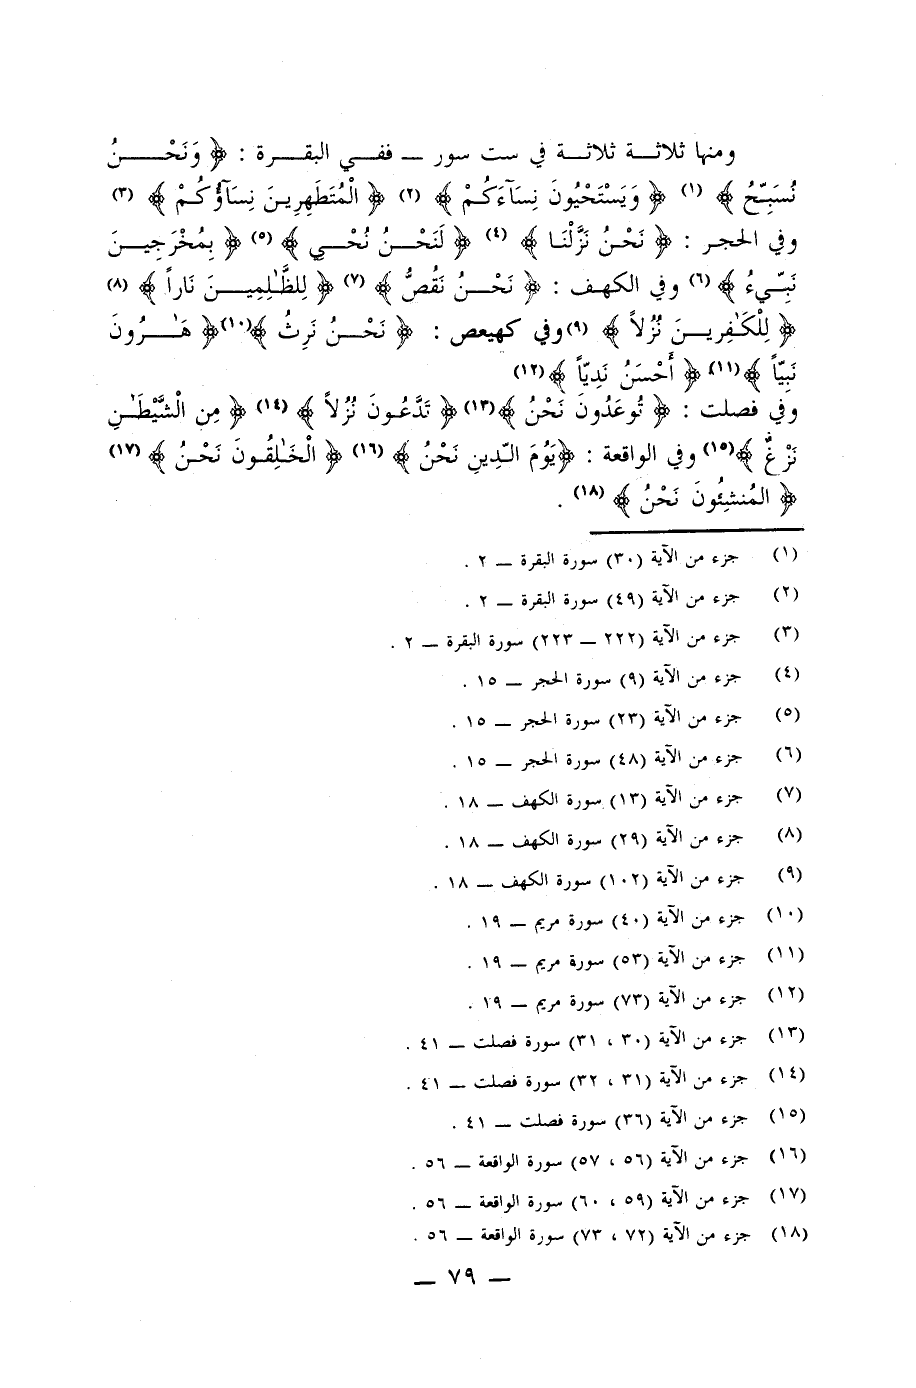 ومنها ثلاثة ثلاثة في ست سور ــ ففي البقرة : ﴿ وَنَحْـنُ
نُسَبِّحُ ﴾ (١) ﴿ وَيَسْتَحْيُونَ نِسَآءَكُمْ ﴾ (٢) ﴿ الْمُتَطَهِرِينَ نِسَآؤُكُمْ ﴾ (٣)
وفي الحجر : ﴿ نَحْنُ نَزَّلْنَا ﴾ (٤) ﴿ لَنَحْـنُ نُحْـي ﴾ (٥) ﴿ بِمُخْرَجِيـنَ
نَبِّـيءُ ﴾ (٦) وفي الكهف : ﴿ نَحْـنُ نَقُصُّ ﴾ (٧) ﴿ لِلظَّٰلِمِيـنَ ناراً ﴾ (٨)
﴿ لِلْكَٰفِرِيـنَ نُزُلاً ﴾ (٩) وفي كهيعص : ﴿ نَحْـنُ نَرِثُ ﴾ (١٠) ﴿ هَٰـرُونَ
نَبِيّاً ﴾ (١١) ﴿ أَحْسَنُ نَدِيّاً ﴾ (١٢)
وفي فصلت : ﴿ تُوعَدُونَ نَحْنُ ﴾ (١٣) ﴿ تَدَّعُـونَ نُزُلاً ﴾ (١٤) ﴿ مِن الشَّيْطَـٰنِ
نَزْغٌ ﴾ (١٥) وفي الواقعة : ﴿ يَوْمَ الـدِّينِ نَحْنُ ﴾ (١٦) ﴿ الْخَٰلِقُونَ نَحْـنُ ﴾ (١٧)
﴿ المُنشِئُونَ نَحْنُ ﴾ (١٨) .
(١) جزء من الآية (٣٠) سورة البقرة ــ ٢ .
(٢) جزء من الآية (٤٩) سورة البقرة ــ ٢ .
(٣) جزء من الآية (٢٢٢ ــ ٢٢٣) سورة البقرة ــ ٢ .
(٤) جزء من الآية (٩) سورة الحجر ــ ١٥ .
(٥) جزء من الآية (٢٣) سورة الحجر ــ ١٥ .
(٦) جزء من الآية (٤٨) سورة الحجر ــ ١٥ .
(٧) جزء من الآية (١٣) سورة الكهف ــ ١٨ .
(٨) جزء من الآية (٢٩) سورة الكهف ــ ١٨ .
(٩) جزء من الآية (١٠٢) سورة الكهف ــ ١٨ .
(١٠) جزء من الآية (٤٠) سورة مريم ــ ١٩ .
(١١) جزء من الآية (٥٣) سورة مريم ــ ١٩ .
(١٢) جزء من الآية (٧٣) سورة مريم ــ ١٩ .
(١٣) جزء من الآية (٣٠ ، ٣١) سورة فصلت ــ ٤١ .
(١٤) جزء من الآية (٣١ ، ٣٢) سورة فصلت ــ ٤١ .
(١٥) جزء من الآية (٣٦) سورة فصلت ــ ٤١ .
(١٦) جزء من الآية (٥٦ ، ٥٧) سورة الواقعة ــ ٥٦ .
(١٧) جزء من الآية (٥٩ ، ٦٠) سورة الواقعة ــ ٥٦ .
(١٨) جزء من الآية (٧٢ ، ٧٣) سورة الواقعة ــ ٥٦ .
ــ ٧٩ ــ